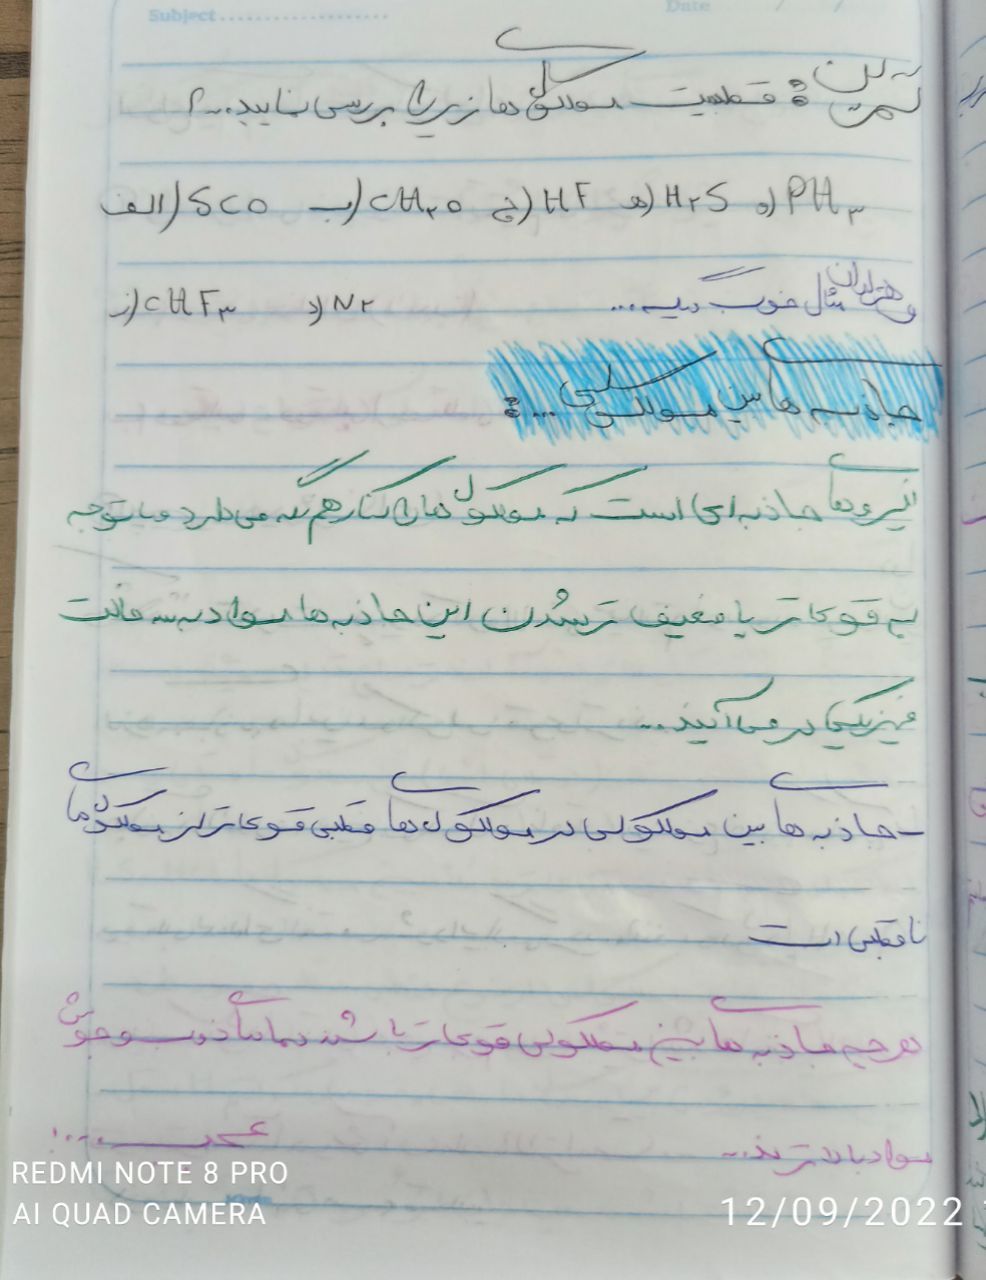 Subject
Date / /
تمرین: قطبیت مولکول های زیر را بررسی نمایید...؟
الف) SCO ب) CH۲O ج) HF ه) H۲S و) PH۳
ز) CHF۳ د) N۲
مثال خوب دیـ...
جاذبه های بین مولکولی...:
نیروهای جاذبه ای است که مولکول ها را کنار هم نگه می دارد و با توجه
به قوی تر یا ضعیف تر شدن این جاذبه ها مواد به سه حالت
فیزیکی در می آیند...
- جاذبه های بین مولکولی در مولکول های قطبی قوی تر از مولکول های
ناقطبی است
هر چه جاذبه های بین مولکولی قوی تر باشند دمای ذوب و جوش
مواد بالاترند...
REDMI NOTE 8 PRO
AI QUAD CAMERA
12/09/2022